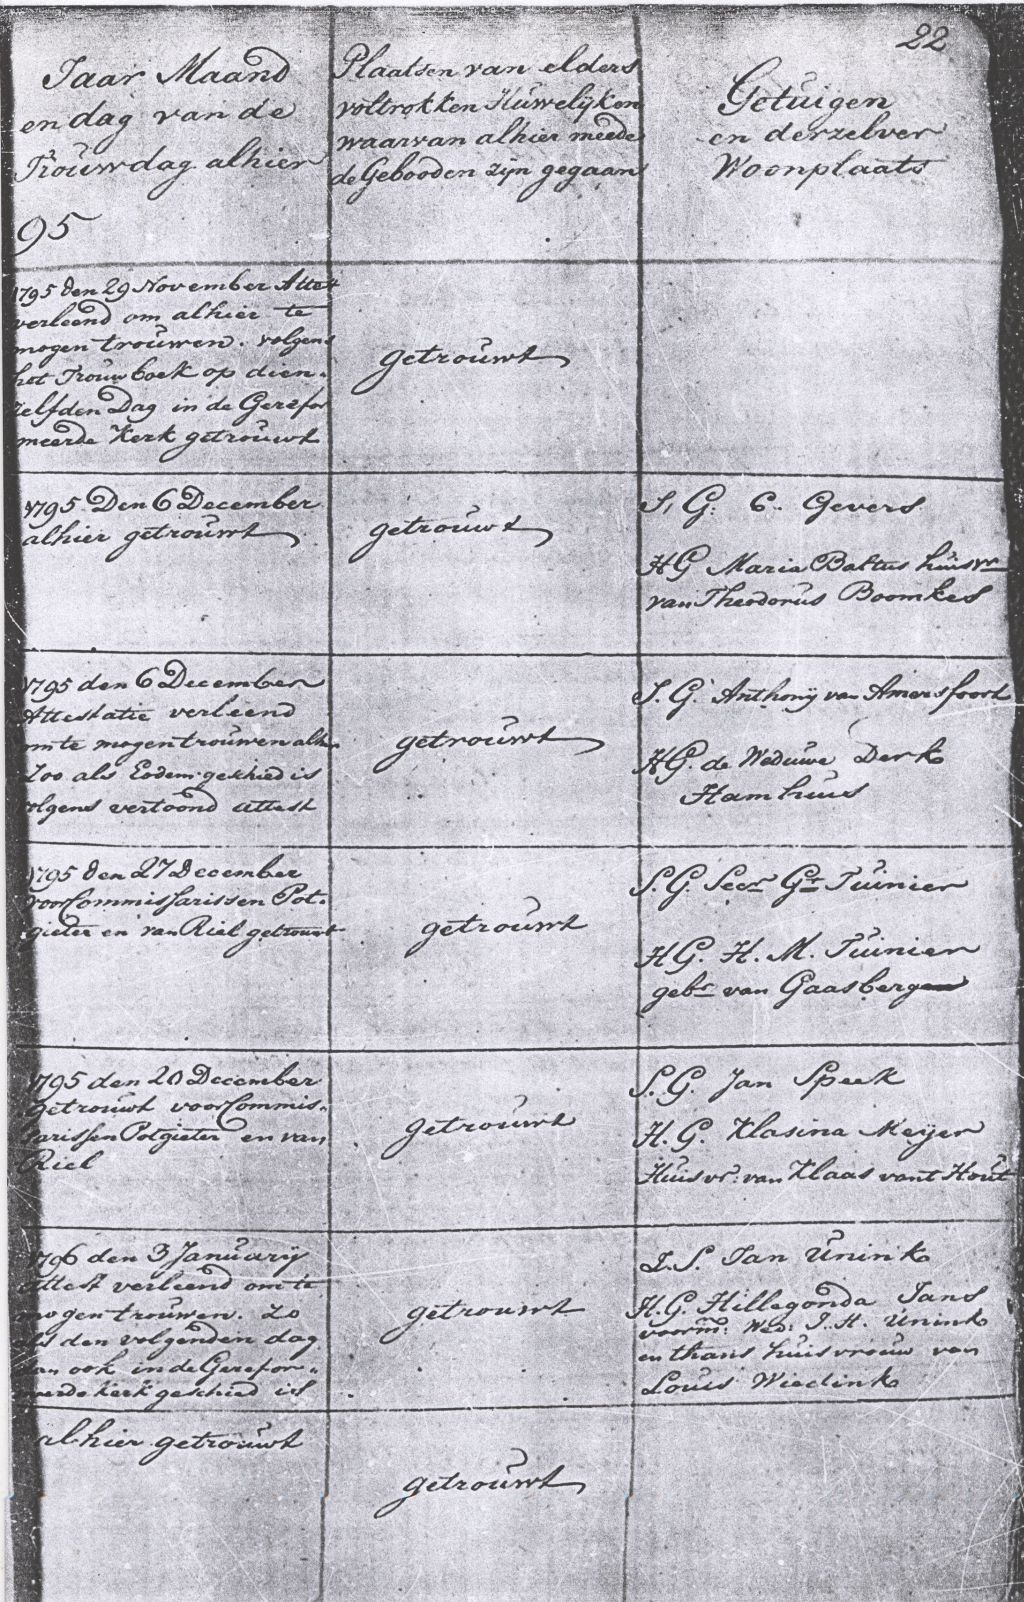 22
Jaar Maand
en dag van de
Trouwdag alhier
95
Plaatsen van elders
voltrokken Huwelijken
waarvan alhier meede
de Gebooden zijn gegaan
Getuigen
en derzelver
Woonplaats
1795 den 29 November Attest
verleend om alhier te
mogen trouwen. volgens
het Trouwboek op dien
zelfden Dag in de Gerefor
meerde Kerk getrouwt
getrouwt
1795 Den 6 December
alhier getrouwt
getrouwt
S. G. C. Gevers
HG Maria Baltus huisvr
van Theodorus Boomkes
1795 den 6 December
Attestatie verleend
om te mogen trouwen alh.
Zoo als Eodem geschied is
volgens vertoond attest
getrouwt
S. G. Anthonij van Amersfoort
HG. de Weduwe Derk
Hamhuis
1795 den 27 December
voor Commissarissen Pot-
gieter en van Riel getrouwt
getrouwt
S. G. Secr Gr Tuinier
HG. H. M. Tuinier
gebr van Gaasbergen
1795 den 20 December
getrouwt voor Commis-
sarissen Potgieter en van
Riel
getrouwt
S. G. Jan Speek
H. G. Klasina Meijer
Huisvr: van Klaas vant Hout
1796 den 3 Januarij
attest verleend om te
mogen trouwen. Zo
als den volgenden dag
dan ook in de Gerefor-
meerde Kerk geschied is
getrouwt
I. S. Jan Unink
H. G. Hillegonda Jans
voorm: Wed: J. H. Unink
en thans huisvrouw van
Louis Wiedink
alhier getrouwt
getrouwt